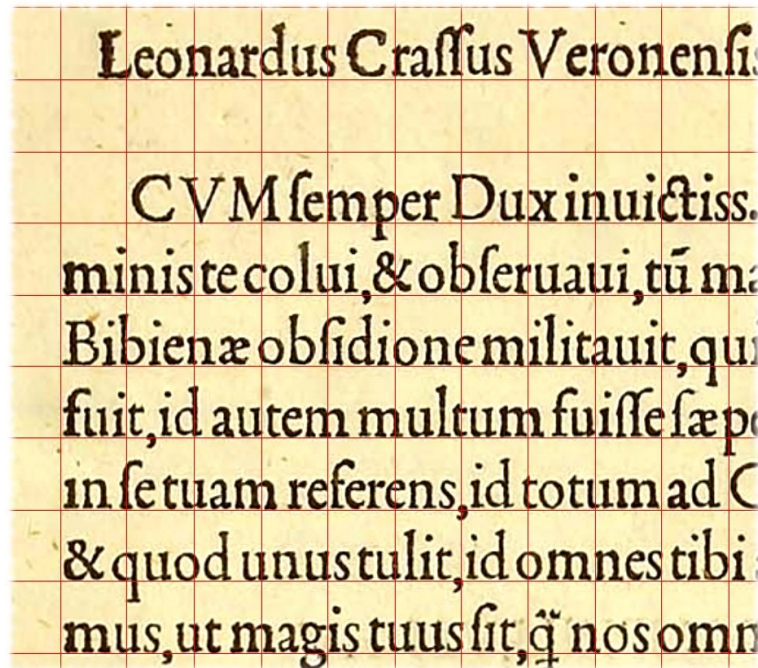 Leonardus Craſſus Veronenſis
CVM ſemper Dux inuictiss.
minis te colui,& obſeruaui,tū
Bibienæ obſidione militauit,
fuit,id autem multum fuiſſe
in ſe tuam referens,id totum ad
& quod unus tulit,id omnes tibi
mus,ut magis tuus ſit,q̃ nos